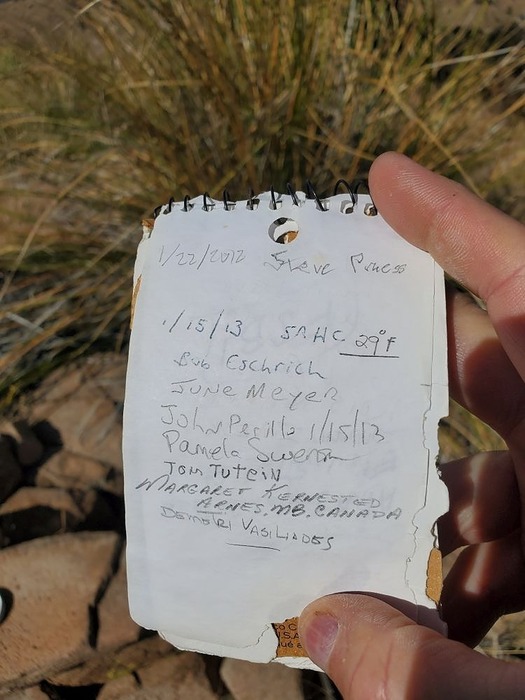 1/22/2012 Steve
1/15/13 SAHC 29°F
Bob Eschrich
June Meyer
John Perillo 1/15/13
Pamela
Tom Tutein
MARGARET KERNESTED
ARNES, MB. CANADA
DEMETRI VASILIADES